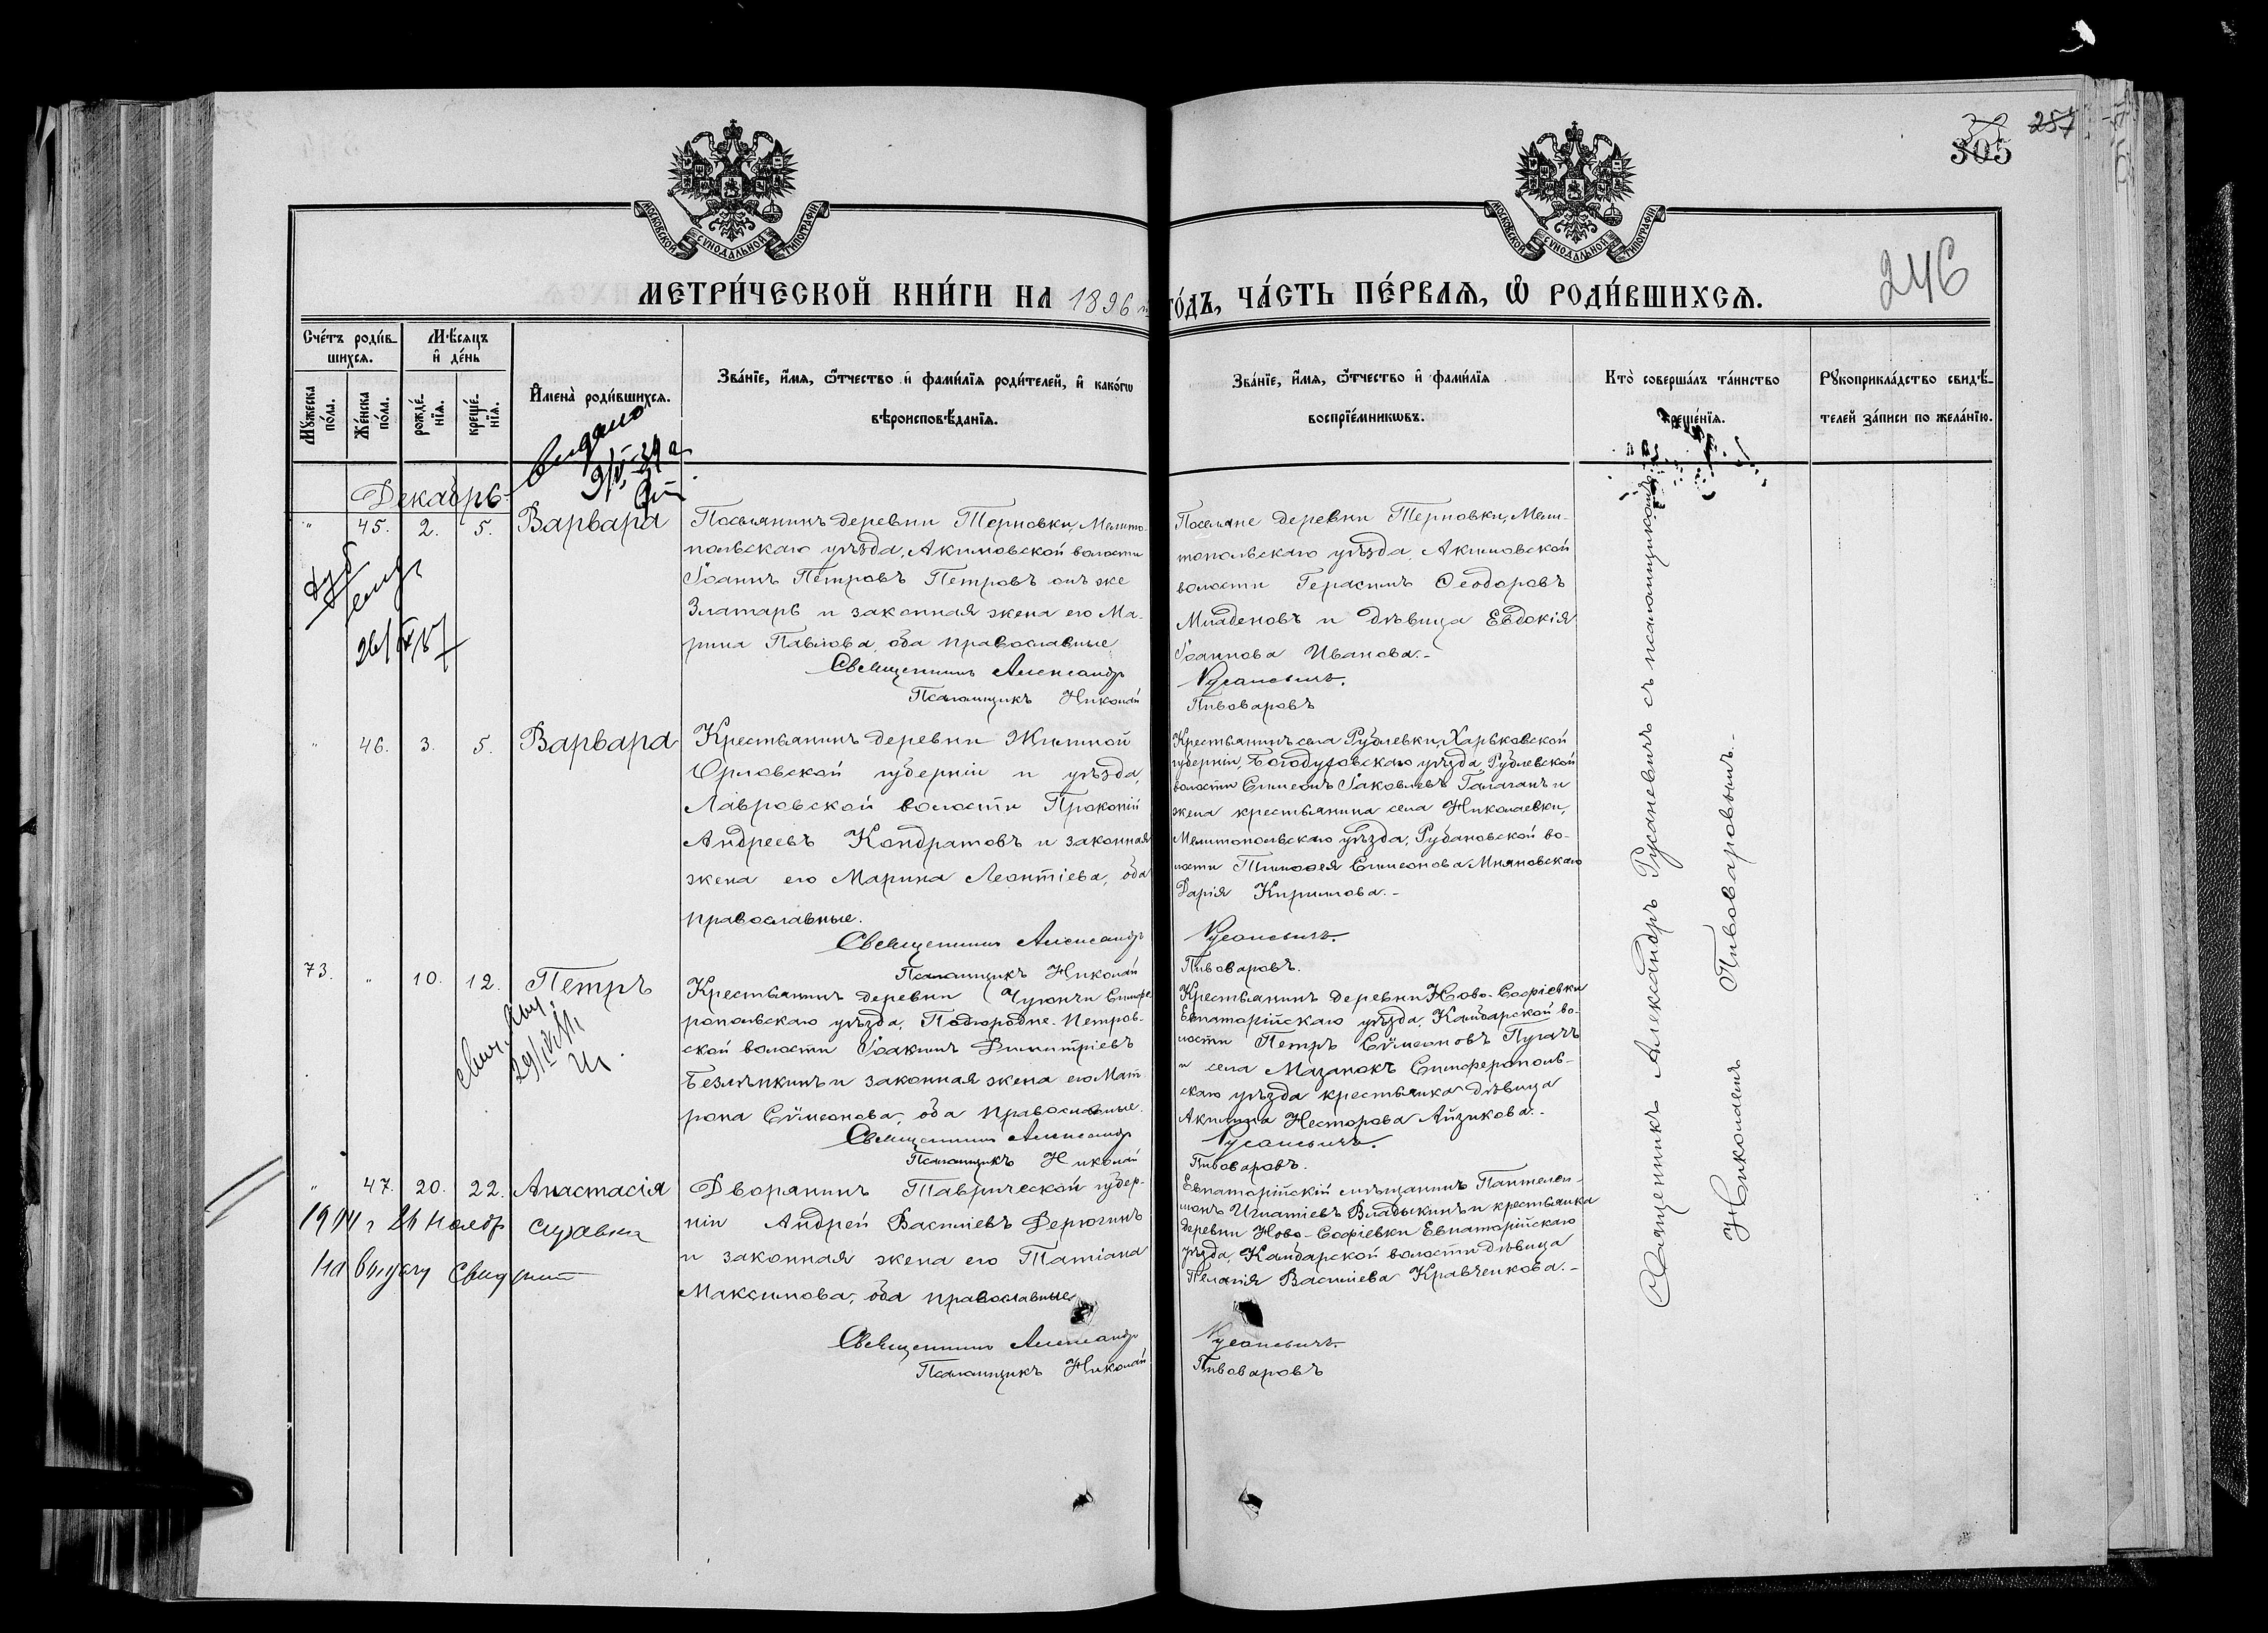 305
257
246
МОСКОВСКОЙ СѴНОДАЛЬНОЙ ТИПОГРАФІИ
МОСКОВСКОЙ СѴНОДАЛЬНОЙ ТИПОГРАФІИ
МЕТРИ́ЧЕСКОЙ КНИ́ГИ НА 1896 ГО́ДЪ, ЧА́СТЬ ПЕ́РВАѦ, Ѡ҆ РОДИ́ВШИХСѦ.
Сче́тъ роди́в-
шихсѧ.
Мѣ́сѧцъ
и҆ де́нь
Мꙋ́жеска
по́ла.
Же́нска
по́ла.
рожде́-
нїѧ.
креще́-
нїѧ.
И҆мена̀ роди́вшихсѧ.
Зва́нїе, и҆́мѧ, ѻ҆́тчество и҆ фами́лїѧ роди́телей, и҆ како́гѡ
вѣроисповѣ́данїѧ.
Зва́нїе, и҆́мѧ, ѻ҆́тчество и҆ фами́лїѧ
воспрїе́мникѡвъ.
Кто̀ соверша́лъ та́инство
креще́нїѧ.
Рꙋкоприкла́дство свидѣ́-
телей за́писи по жела́нїю.
выдано
Декабрь
" 45. 2. 5. Варвара
Поселянинъ деревни Терновки, Мелито-
польскаго уѣзда, Акимовской волости
Іоаннъ Петровъ Петровъ онъ же
Златарь и законная жена его Ма-
рина Павлова, оба православные,
Священникъ Александръ
Псаломщикъ Николай
Поселяне деревни Терновки, Мели-
топольскаго уѣзда, Акимовской
волости Герасимъ Ѳеодоровъ
Младеновъ и дѣвица Евдокія
Іоаннова Иванова.-
Русаневичъ.
Пивоваровъ
" 46. 3. 5. Варвара
Крестьянинъ деревни Жилиной
Орловской губерніи и уѣзда,
Лавровской волости Прокопій
Андреевъ Кондратовъ и законная
жена его Марина Леонтіева, оба
православные.
Священникъ Александръ
Псаломщикъ Николай
Крестьянинъ села Рублевки, Харьковской
губерніи, Богодуховскаго уѣзда, Рублевской
волости Симеонъ Іаковлевъ Галаганъ и
жена крестьянина села Николаевки,
Мелитопольскаго уѣзда, Рубановской во-
лости Тимоѳея Симеонова Мняновскаго
Дарія Кирилова.-
Русаневичъ.
Пивоваровъ.
73. " 10. 12. Петръ
Крестьянинъ деревни Чуюнчи Симфе
ропольскаго уѣзда, Подгородне-Петров-
ской волости Іоакимъ Димитріевъ
Безлѣпкинъ и законная жена его Мат
рона Сѵмеонова, оба православные.
Священникъ Александръ
Псаломщикъ Николай
Крестьянинъ деревни Ново-Софіевки
Евпаторійскаго уѣзда, Камбарской во-
лости Петръ Сѵмеоновъ Пугачъ
и села Мазанокъ Симферополь-
скаго уѣзда крестьянка дѣвица
Акилина Несторова Айзикова.-
Русаневичъ.
Пивоваровъ.
" 47. 20. 22. Анастасія
1914 г 26 Ноябр справка
на выдачу свид
Дворянинъ Таврической губер-
ніи Андрей Василіевъ Дерюгинъ
и законная жена его Татіана
Максимова, оба православные
Священникъ Александръ
Псаломщикъ Николай
Евпаторійскій мѣщанинъ Пантелеи-
монъ Игнатіевъ Владыкинъ и крестьянка
деревни Ново-Софіевки Евпаторійскаго
уѣзда, Камбарской волости дѣвица
Пелагія Василіева Кравченкова.-
Русаневичъ.
Пивоваровъ
Священникъ Александръ Русаневичъ съ псаломщикомъ
Николаемъ Пивоваровымъ.-